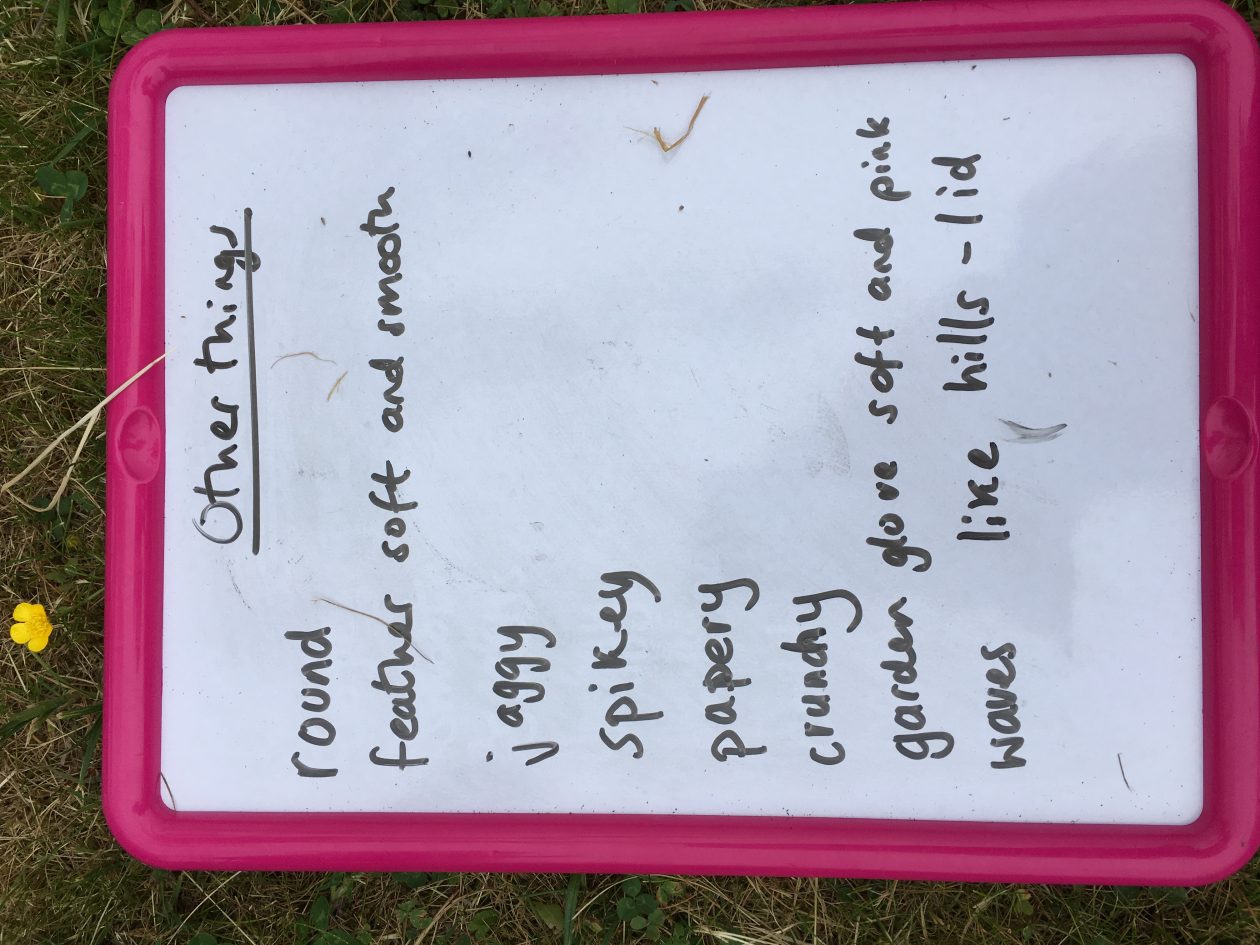 Other things
round
feather soft and smooth
jaggy
spikey
papery
crunchy
garden glove soft and pink
waves like hills - lid